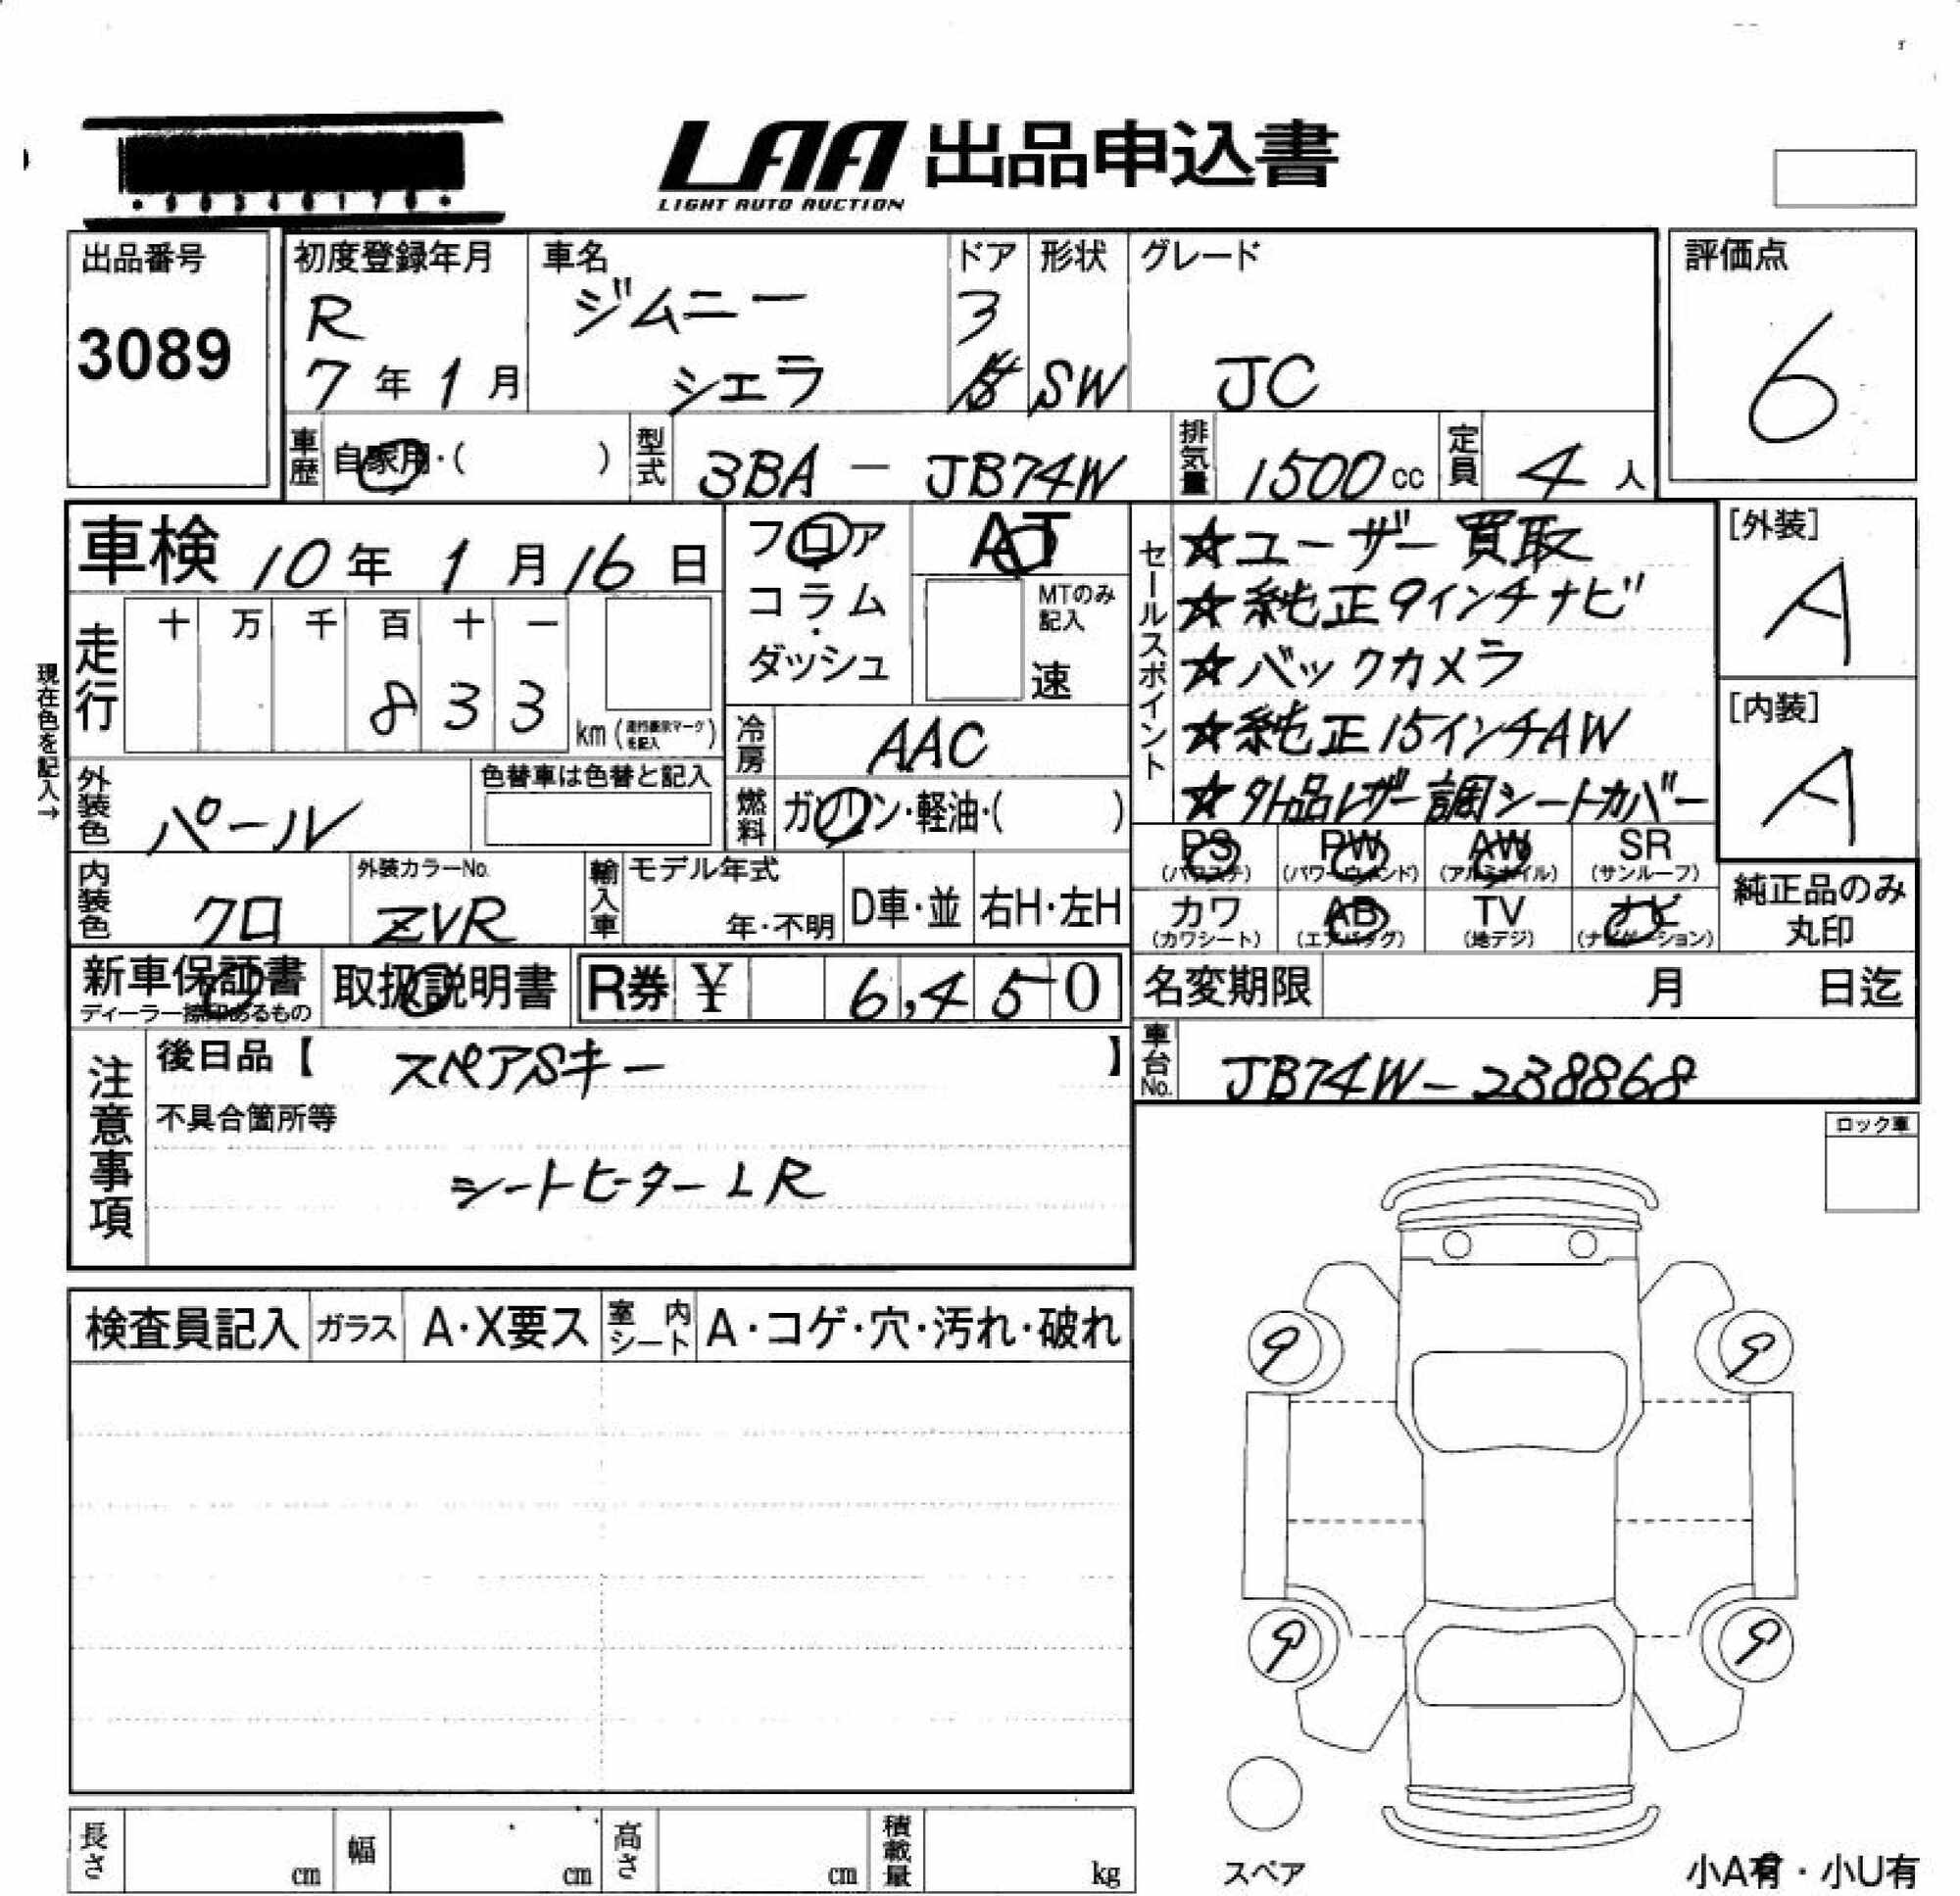 LAA 出品申込書
LIGHT AUTO AUCTION
出品番号
3089
初度登録年月
R
7年1月
車名
ジムニー
シェラ
ドア
3
形状
SW
グレード
JC
評価点
6
車歴 自家用・( )
型式 3BA - JB74W
排気量 1500cc
定員 4人
車検 10年1月16日
走行 十 万 千 百 十 一
8 3 3
km
現在色を記入→
外装色 パール
色替車は色替と記入
内装色 クロ
外装カラーNo. ZVR
フロア
・
コラム
・
ダッシュ
AT
MTのみ
記入
速
冷房 AAC
燃料 ガソリン・軽油・( )
輸入車 モデル年式
年・不明
D車・並
右H・左H
セールスポイント
☆ユーザー買取
☆純正9インチナビ
☆バックカメラ
☆純正15インチAW
☆外品レザー調シートカバー
[外装]
A
[内装]
A
PS (パワステ)
PW (パワーウィンド)
AW (アルミホイル)
SR (サンルーフ)
カワ (カワシート)
AB (エアバッグ)
TV (地デジ)
ナビ (ナビゲーション)
純正品のみ
丸印
新車保証書
ディーラー捺印あるもの
取扱説明書
R券 ¥ 6,450
名変期限 月 日迄
車台No. JB74W-238868
注意事項
後日品【 スペアSキー 】
不具合箇所等
シートヒーターLR
ロック車
検査員記入
ガラス A・X要ス
室内シート A・コゲ・穴・汚れ・破れ
9
9
9
9
スペア
小A有・小U有
長さ cm
幅 cm
高さ cm
積載量 kg